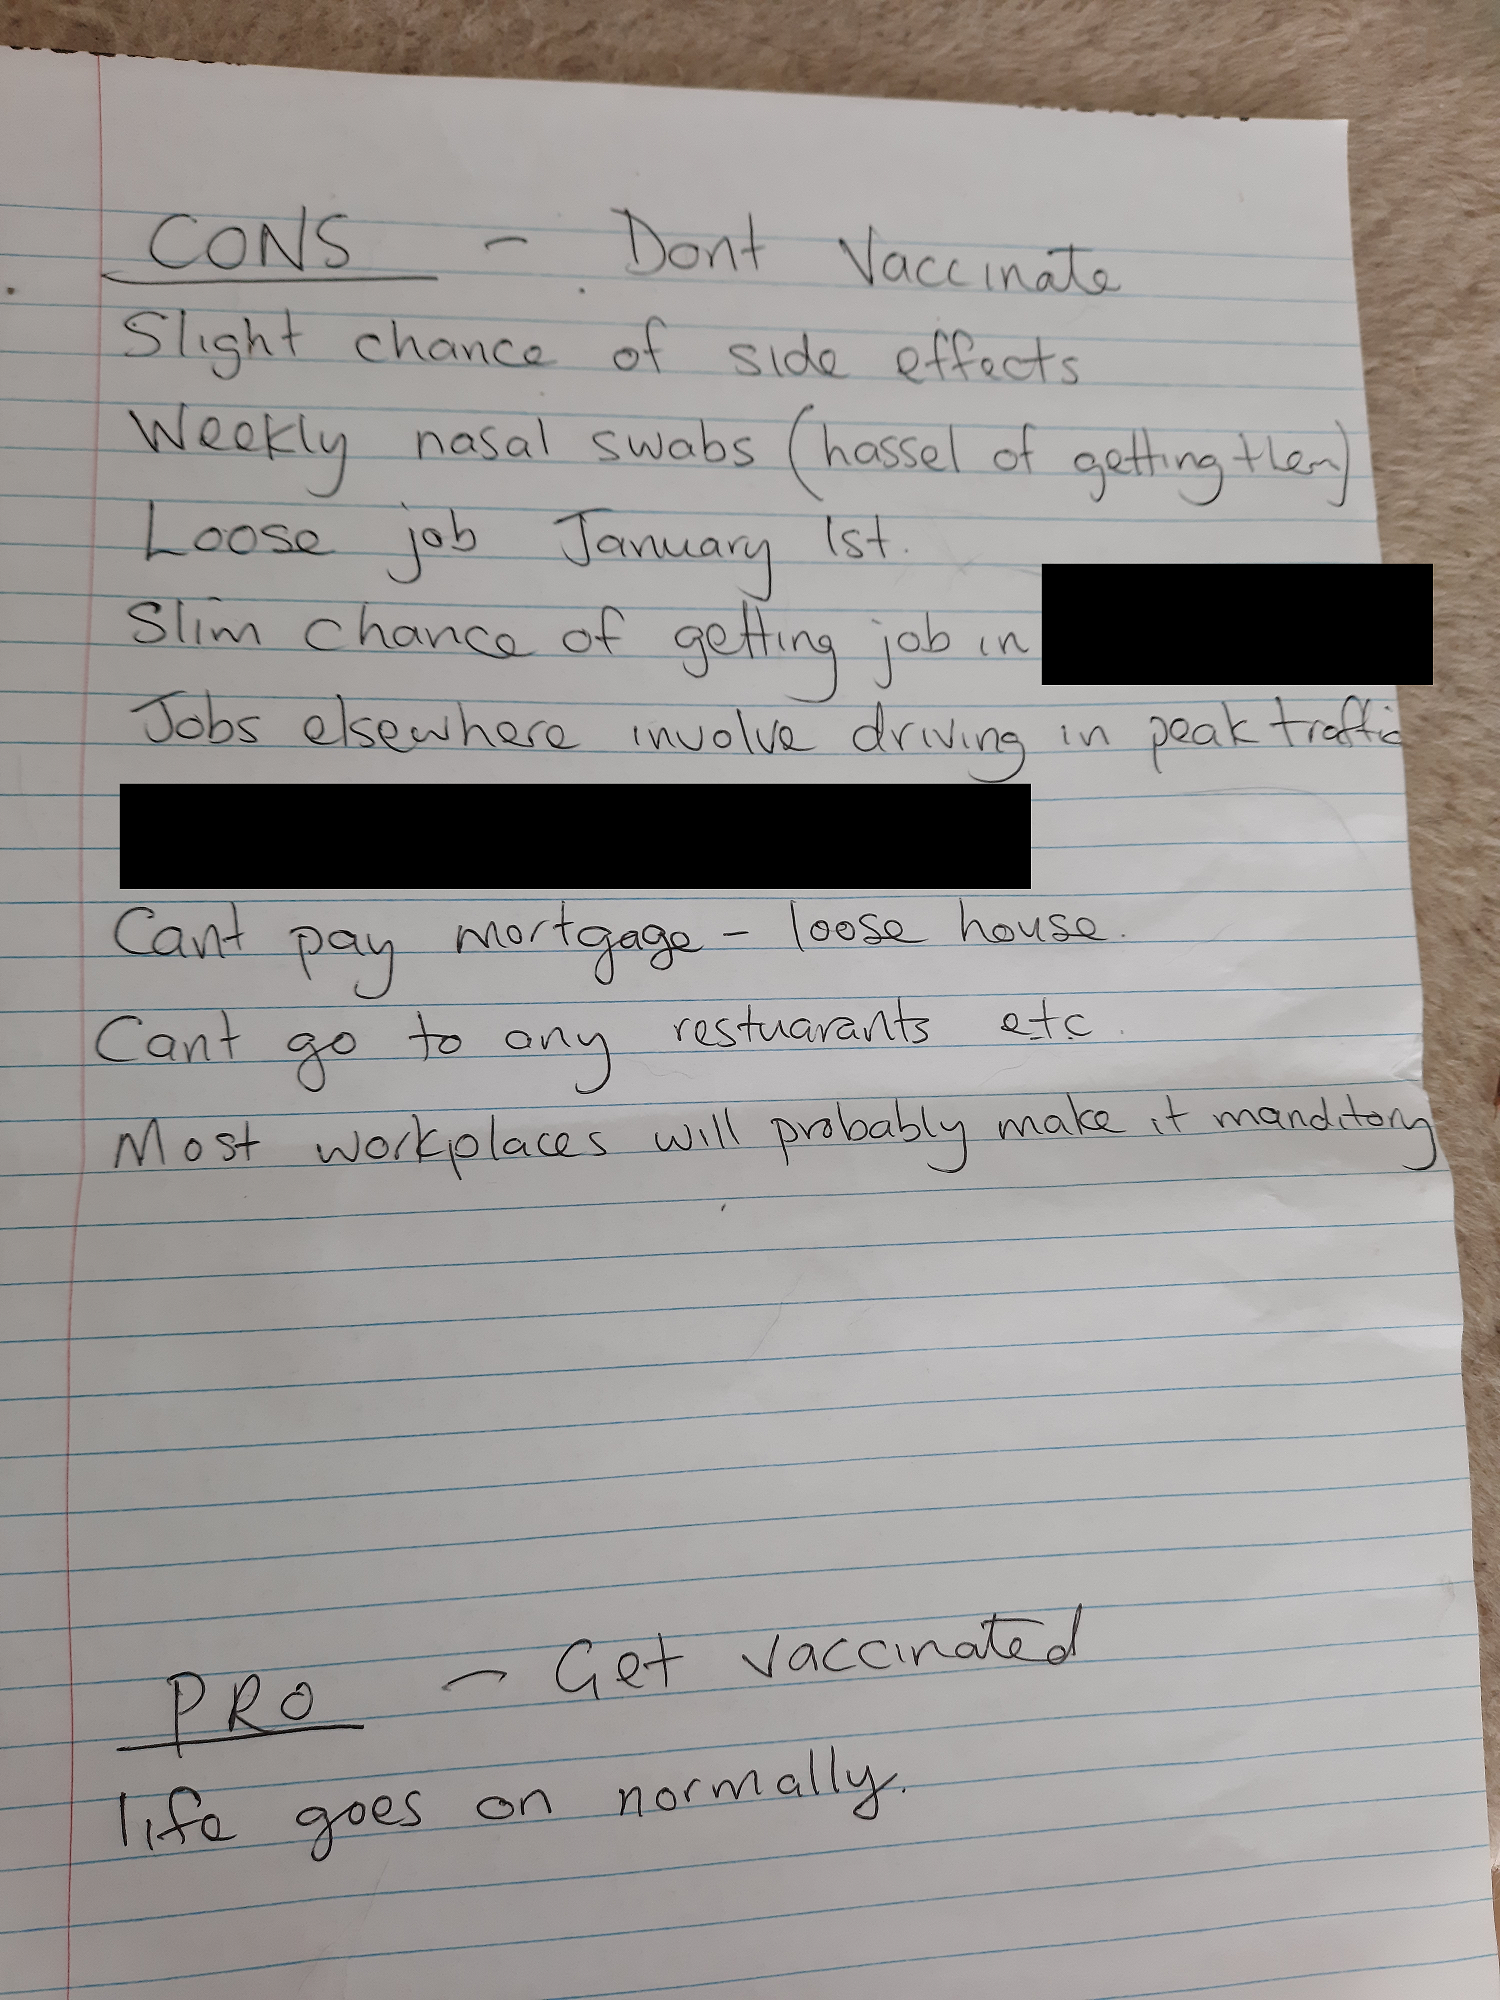 CONS - Dont Vaccinate
Slight chance of side effects
Weekly nasal swabs (hassel of getting them)
Loose job January 1st.
Slim chance of getting job in
Jobs elsewhere involve driving in peak traffic
Cant pay mortgage - loose house.
Cant go to any restuarants etc.
Most workplaces will probably make it manditory
PRO - Get vaccinated
life goes on normally.